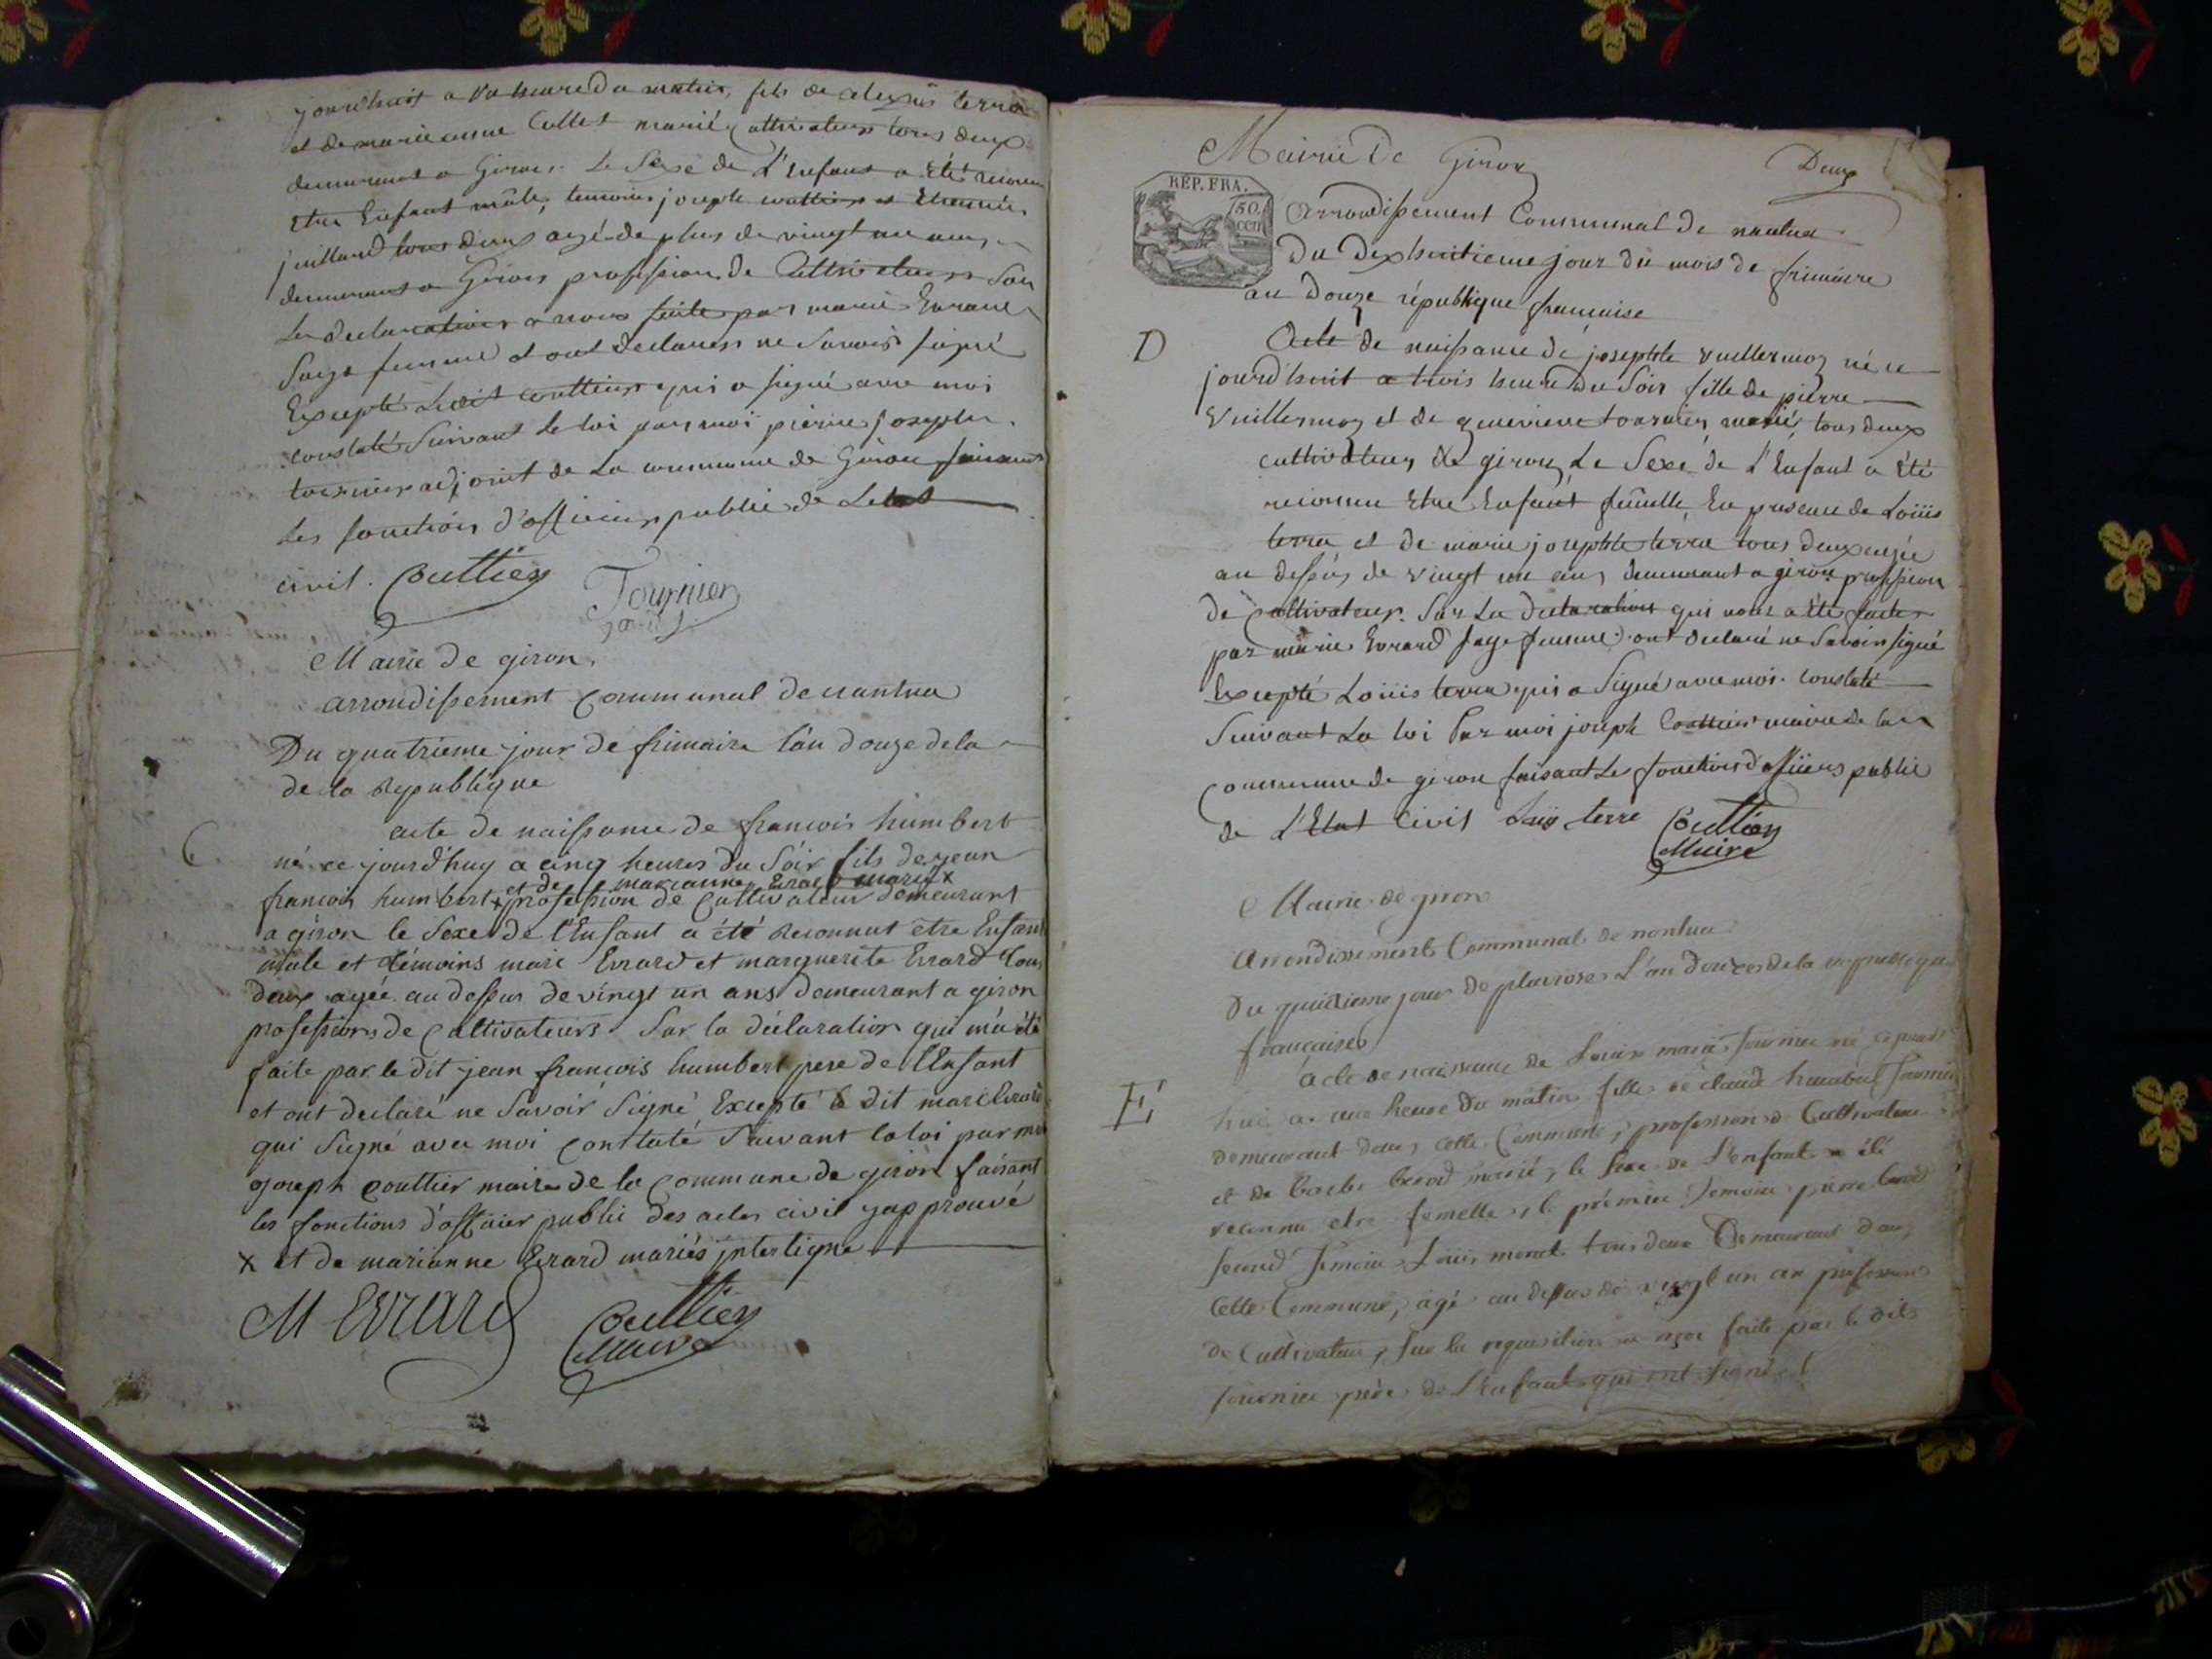 jourd'huit a Un heure du matin, fils de alexis terra
et de marie anne Cullet marié cultivateurs tous deux
demeurant a Giron. Le Sexe de L'Enfant a Eté reconu
Etre Enfant mâle, temoins joseph couttier et Etienne
juillard tous deux agé de plus de vingt un ans,
demeurant a Giron profession de Cultivateurs Sur
La declaration a nous faite par marie Evrard
Sage femme et ont declarer ne Savoir signé
Excepté Ledit couttier qui a signé avec moi
constaté Suivant la loi par moi pierre joseph
tournier adjoint de La commune de Giron faisant
les fonction d'officier public de Letat
civil. Couttier Tournier
Mairie de giron
arrondissement Communal de nantua
Du quatrieme jour de frimaire l'an douze de la
de la Republique
C
acte de naissance de francois humbert
né ce jourd'huy a cinq heures du Soir fils de jean
et de marianne Evrard mariés x
francois humbert x profession de Cultivateur demeurant
a giron le Sexe de l'Enfant a été Reconnut être Enfant
mâle et témoins marc Evrard et marguerite Evrard tous
deux agée au dessus de vingt un ans demeurant a giron
professions de Cultivateurs. Sur la déclaration qui m'a été
faite par le dit jean francois humbert pere de l'Enfant
et ont declaré ne Savoir Signé Excepté le dit marc Evrard
qui Signé avec moi Constaté Suivant la loi par moi
joseph couttier maire de la Commune de giron faisant
les fonctions d'officier public des actes civil japprouvé
x et de marianne Evrard mariés interligne
M Evrard Couttier
Maire
Mairie De Giron Deux
REP. FRA.
50.
cen
Arrondissement Communal de nantua
Du Dixhuitieme jour du mois de frimaire
an Douze république française
D
Acte de naissance de josephte vuillermoz né ce
jourd'huit a trois heure du Soir fille de pierre
Vuillermoz et de genevieve tournier marié, tous deux
cultivateurs de giron, Le Sexe de L'Enfant a Eté
reconnu Etre Enfant fémelle, En presence de Loüis
terra et de marie josephte terra tous deux agée
au dessus de vingt un ans demeurant a giron profession
de Cultivateur. Sur La declaration qui nous a Eté faite
par marie Evrard Sage femme. ont declaré ne Savoir signé
Excepté Loüis terra qui a Signé avec moi. constaté
Suivant La loi Par moi joseph Couttier maire de la
Commune de giron faisant Le fonction d'officiers public
de L'Etat Civil Loüis terre Couttier
Maire
Mairie de giron
Arrondissement Communal de nantua
Du jour de pluviose L'an Douze de la republique
française
E
Acte de naissance de Louise marie fournier né ce jourd
hui a une heure Du matin fille de claude humbert fournier
demeurant dans cette Commune, profession de Cultivateur
et de Evrard marié, le Sexe de L'enfant a été
reconnu etre femelle, le prémier Temoin pierre Evrard
second Témoin Loüis monet tous deux Demeurant dans
Cette Commune, agé au dessus de vingt un an profession
de Cultivateur, Sur la requisition a moi faite par le dit
fournier père de L'enfant qui ont signé